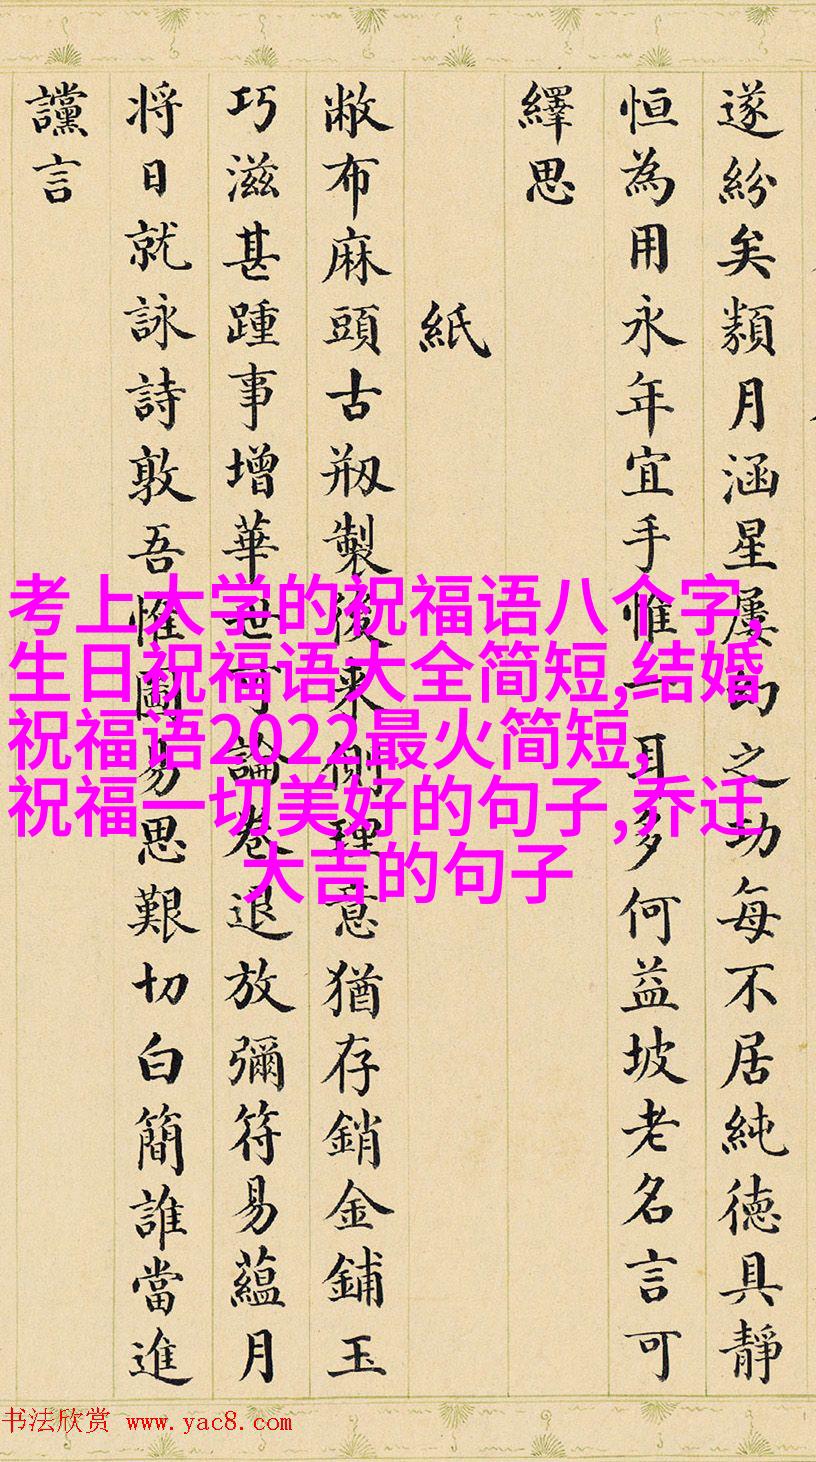 遂紛矣類月涵星屢的之功每不居純德具靜
恒為用永年宜手惟一耳多何益坡老名言可
繹思
紙
敝布麻頭古剏製後來側理意猶存銷金鋪玉
巧滋甚踵事增華世何論卷退放彌符易蘊月
将日就詠詩敦吾惟圖易思艱切白簡誰當進
讜言
考上大学的祝福语八个字,
生日祝福语大全简短,结婚
祝福语2022最火简短,
祝福一切美好的句子,乔迁
大吉的句子
书法欣赏 www.yac8.com